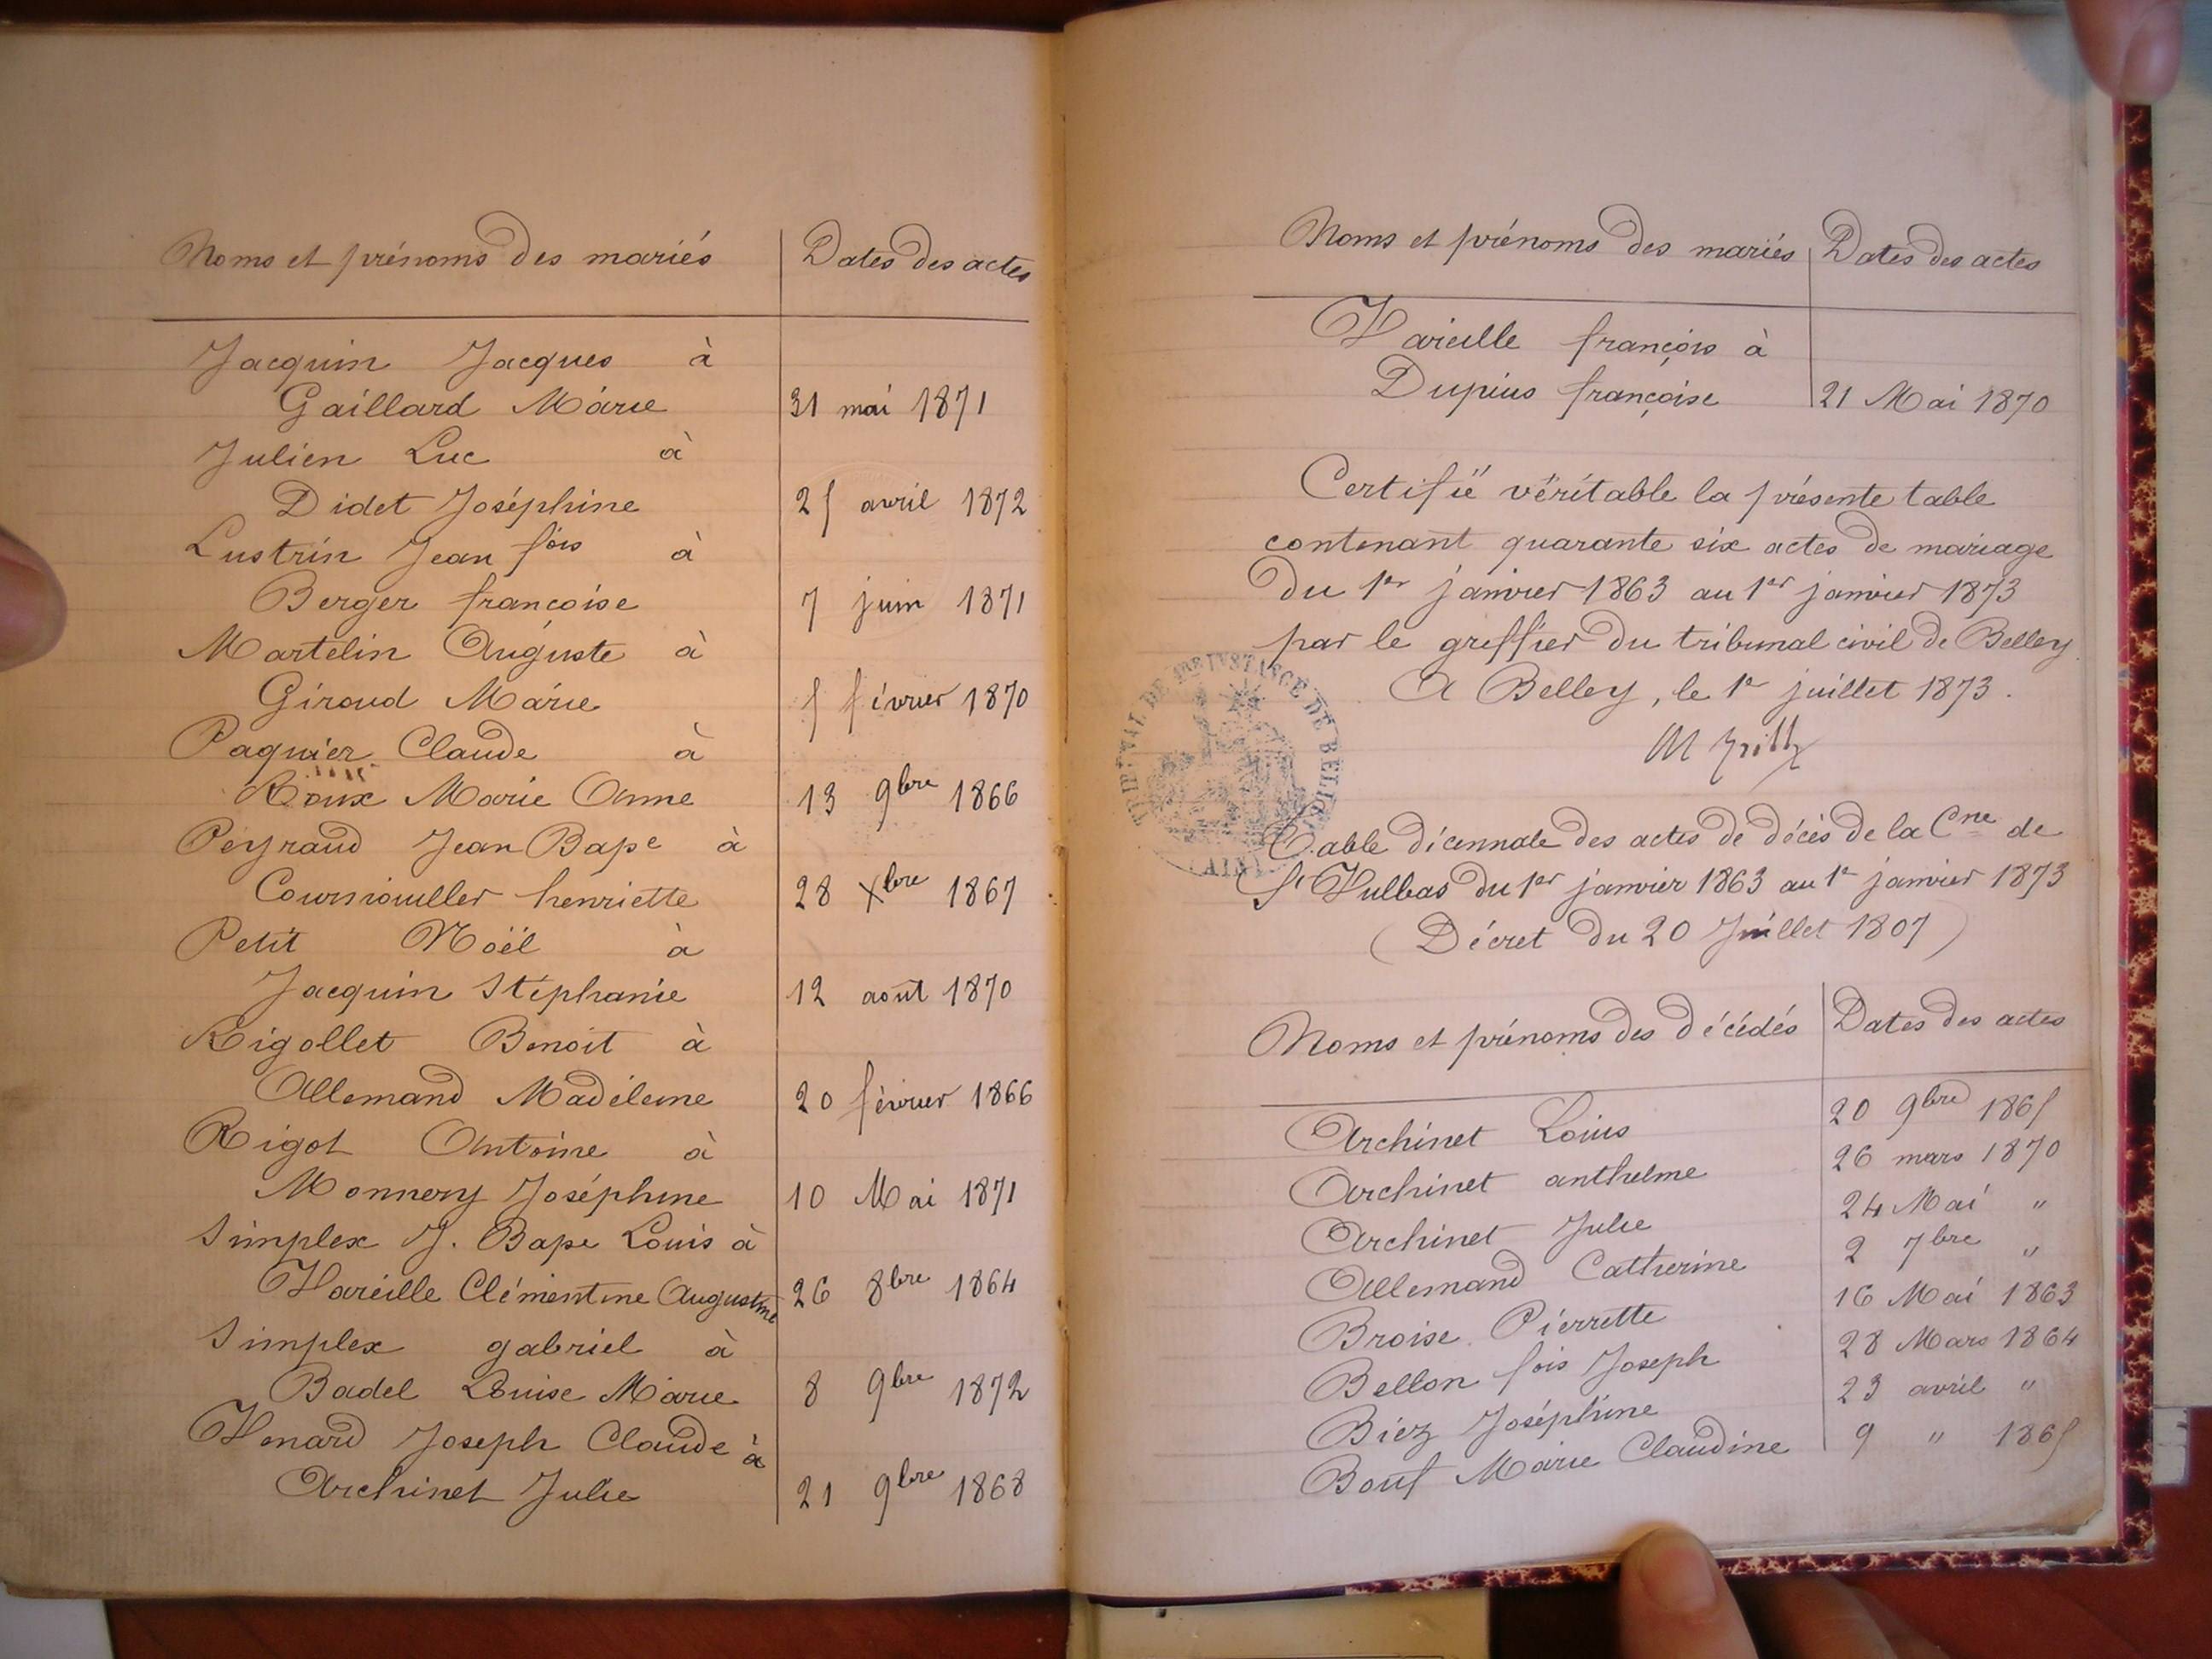 Noms et prénoms des mariés | Dates des actes
Jacquin Jacques à
Gaillard Marie 31 mai 1871
Julien Luc à
Didet Joséphine 25 avril 1872
Lustrin Jean fois à
Berger françoise 7 juin 1871
Martelin Auguste à
Giroud Marie 5 février 1870
Paquier Claude à
Roux Marie Anne 13 9bre 1866
Peyraud Jean Bape à
henriette 28 Xbre 1867
Petit Noël à
Jacquin Stéphanie 12 août 1870
Rigollet Benoit à
Allemand Madeleine 20 février 1866
Rigot Antoine à
Monnery Joséphine 10 Mai 1871
Simplex J. Bape Louis à
Vareille Clémentine Augustine 26 8bre 1864
Simplex gabriel à
Badel Louise Marie 8 9bre 1872
Venard Joseph Claude à
Archinet Julie 21 9bre 1868
Noms et prénoms des mariés | Dates des actes
Vareille françois à
Dupuis françoise 21 Mai 1870
Certifié véritable la présente table
contenant quarante six actes de mariage
du 1er janvier 1863 au 1er janvier 1873
par le greffier du tribunal civil de Belley.
A Belley, le 1er juillet 1873.
Table décennale des actes de décès de la Cne de
St Vulbas du 1er janvier 1863 au 1er janvier 1873
(Décret du 20 Juillet 1807)
Noms et prénoms des décédés | Dates des actes
Archinet Louis 20 9bre 1865
Archinet anthelme 26 mars 1870
Archinet Julie 24 Mai "
Allemand Catherine 2 7bre "
Broise Pierrette 16 Mai 1863
Bellon fois Joseph 28 Mars 1864
Biez Joséphine 23 avril "
Marie Claudine 9 " 1865